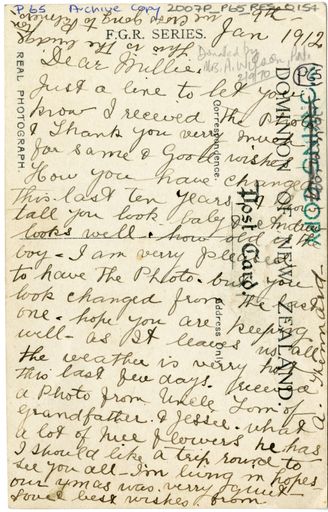 P65 Archive copy 2007P_P65_RES_0154
F.G.R. SERIES.
9th
Jan 1912
Donated by
Mrs. A. Wilson, Pal.
2/9/70
P65
REAL PHOTOGRAPH
Correspondence.
Post Card.
Address Only
DOMINION OF NEW ZEALAND
COPY
Dear Millie.
Just a line to let you
know I received The Photo
& Thank you very much
for same & Good wishes
How you have changed
this last ten years.
tall you look baby
looks well. how old is the
boy - I am very
to have The Photo. but you
look changed from The last
one. hope you are keeping
well - as It leaves us all
the weather is verry hot
this last few days. received
a Photo from Uncle Tom of
grandfather. & Jessie. what
a lot of nice flowers he has
I should like a trip round to
see you all - Im living in hopes
our xmas was verry quiet
love & best wishes from